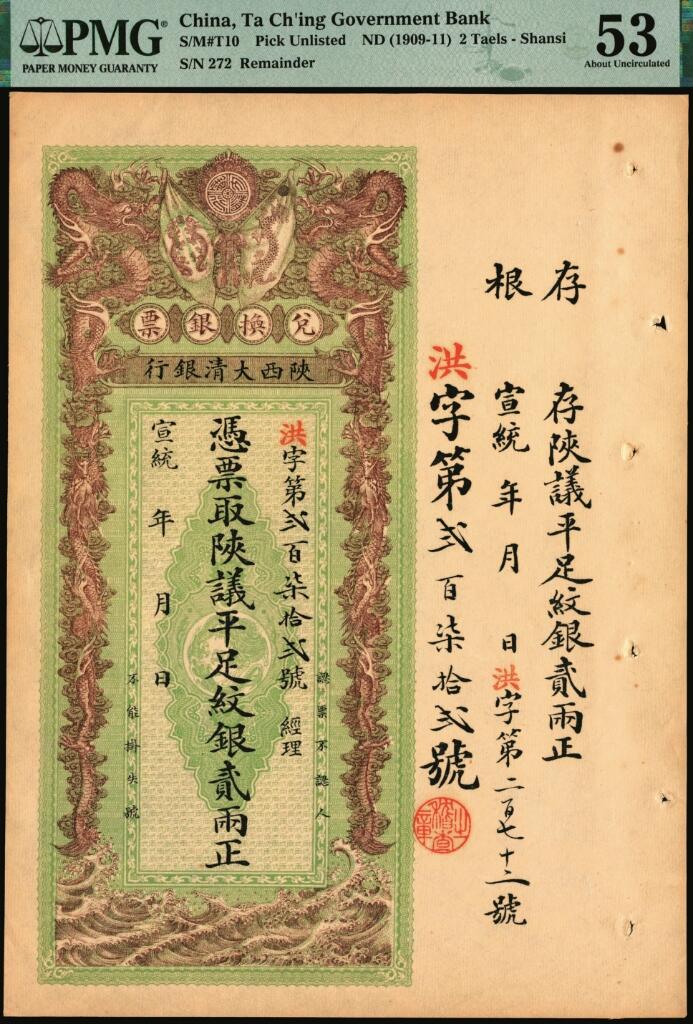 PMG®
PAPER MONEY GUARANTY
China, Ta Ch'ing Government Bank
S/M#T10 Pick Unlisted ND (1909-11) 2 Taels - Shansi
S/N 272 Remainder
53
About Uncirculated
兌換銀票
陝西大清銀行
洪字第弍百柒拾弍號 經理
認票不認人
憑票取陝議平足紋銀貳兩正
宣統 年 月 日
不能掛失號
存根
存陝議平足紋銀貳兩正
宣統 年 月 日 洪字第二百七十二號
洪字第弍百柒拾弍號